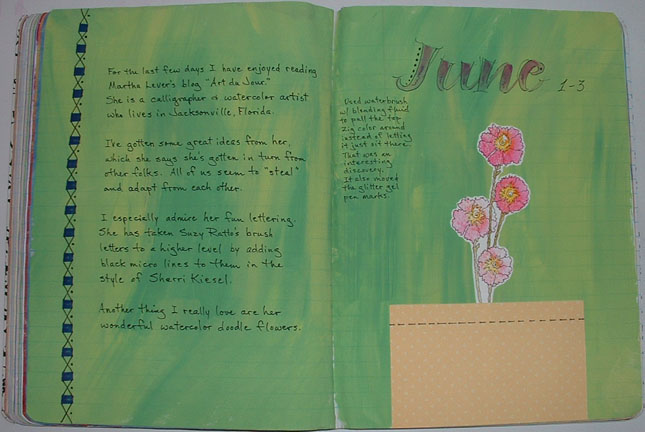 For the last few days I have enjoyed reading
Martha Lever's blog "Art da Jour."
She is a calligrapher & watercolor artist
who lives in Jacksonville, Florida.
I've gotten some great ideas from her,
which she says she's gotten in turn from
other folks. All of us seem to "steal"
and adapt from each other.
I especially admire her fun lettering.
She has taken Suzy Ratto's brush
letters to a higher level by adding
black micro lines to them in the
style of Sherri Kiesel.
Another thing I really love are her
wonderful watercolor doodle flowers.
June 1-3
Used waterbrush
w/ blending fluid
to pull the top
Zig color around
instead of letting
it just sit there.
That was an
interesting
discovery.
It also moved
the glitter gel
pen marks.